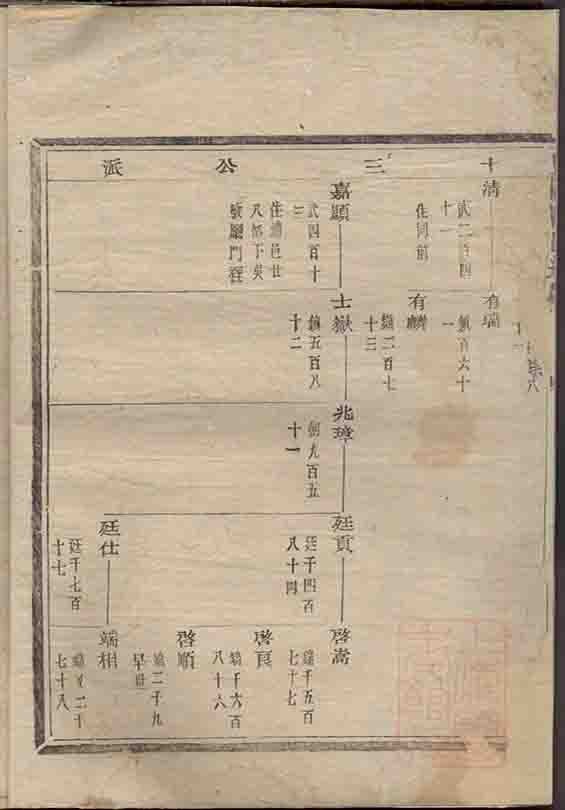 十三公派
清
武二百四
十一
住同前
嘉顯
武四百十
三
住浦邑廿
八都下吳
有瑞
十一
有麟
鎮二百七
十三
士嶽
鎮五百八
十二
兆璋
朝九百五
十一
廷貢
廷千四百
八十四
廷仕
廷千七百
十七
啓嵩
端千五百
七十七
啓良
端千六百
八十六
啓順
端二千九
早世
端相
端又二千
七十八